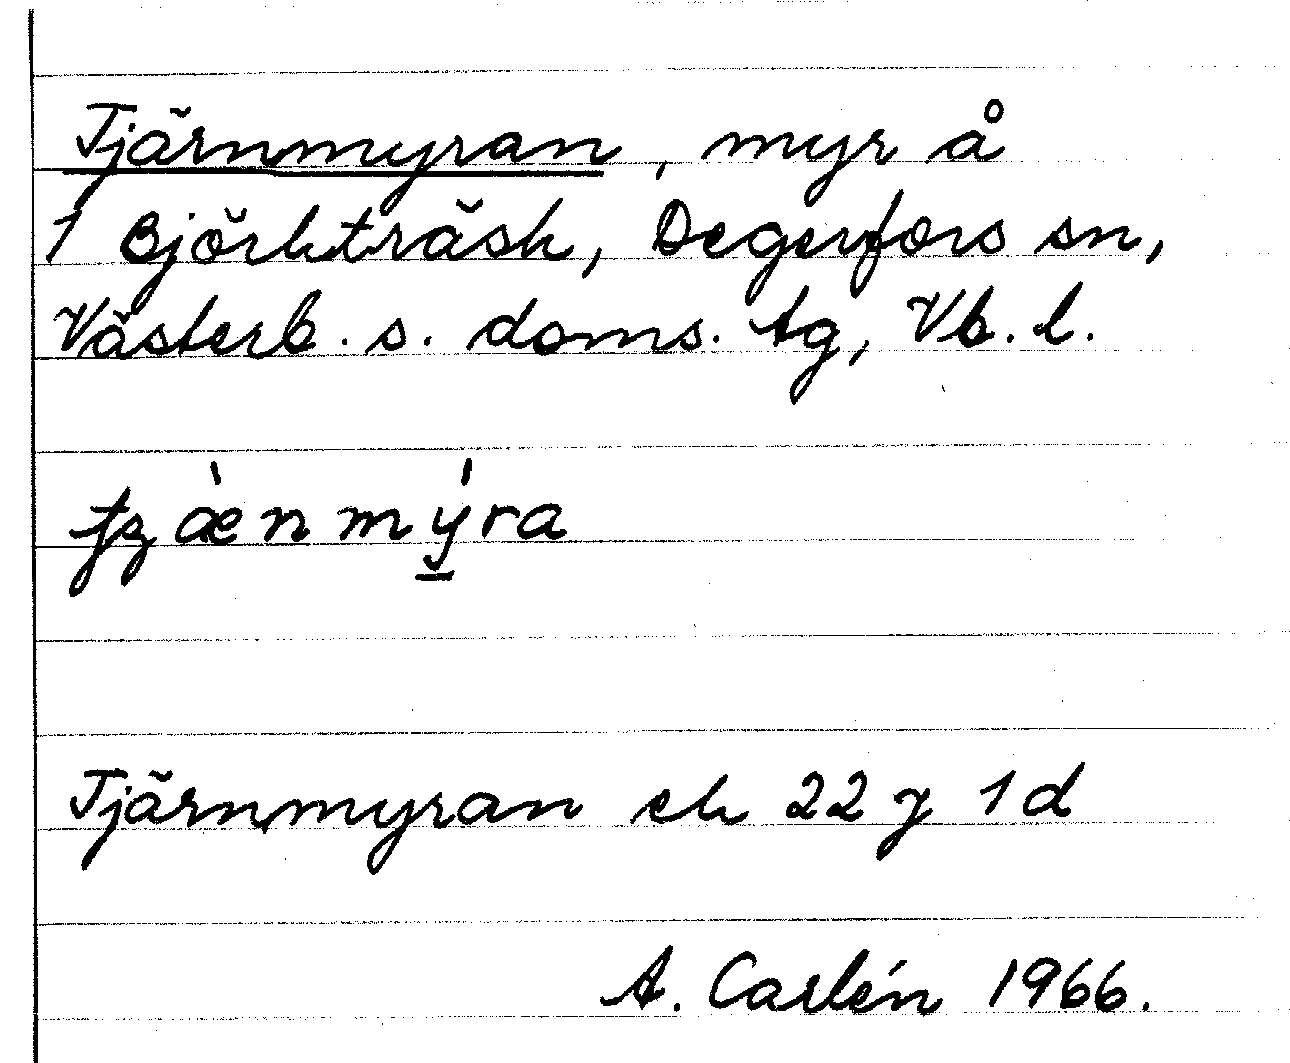 Tjärnmyran, myr å
1 Björkträsk, Degerfors sn,
Västerb. s. doms. tg, Vb. l.
Tjärnmyran ek 22 J 1 d
A. Carlén 1966.